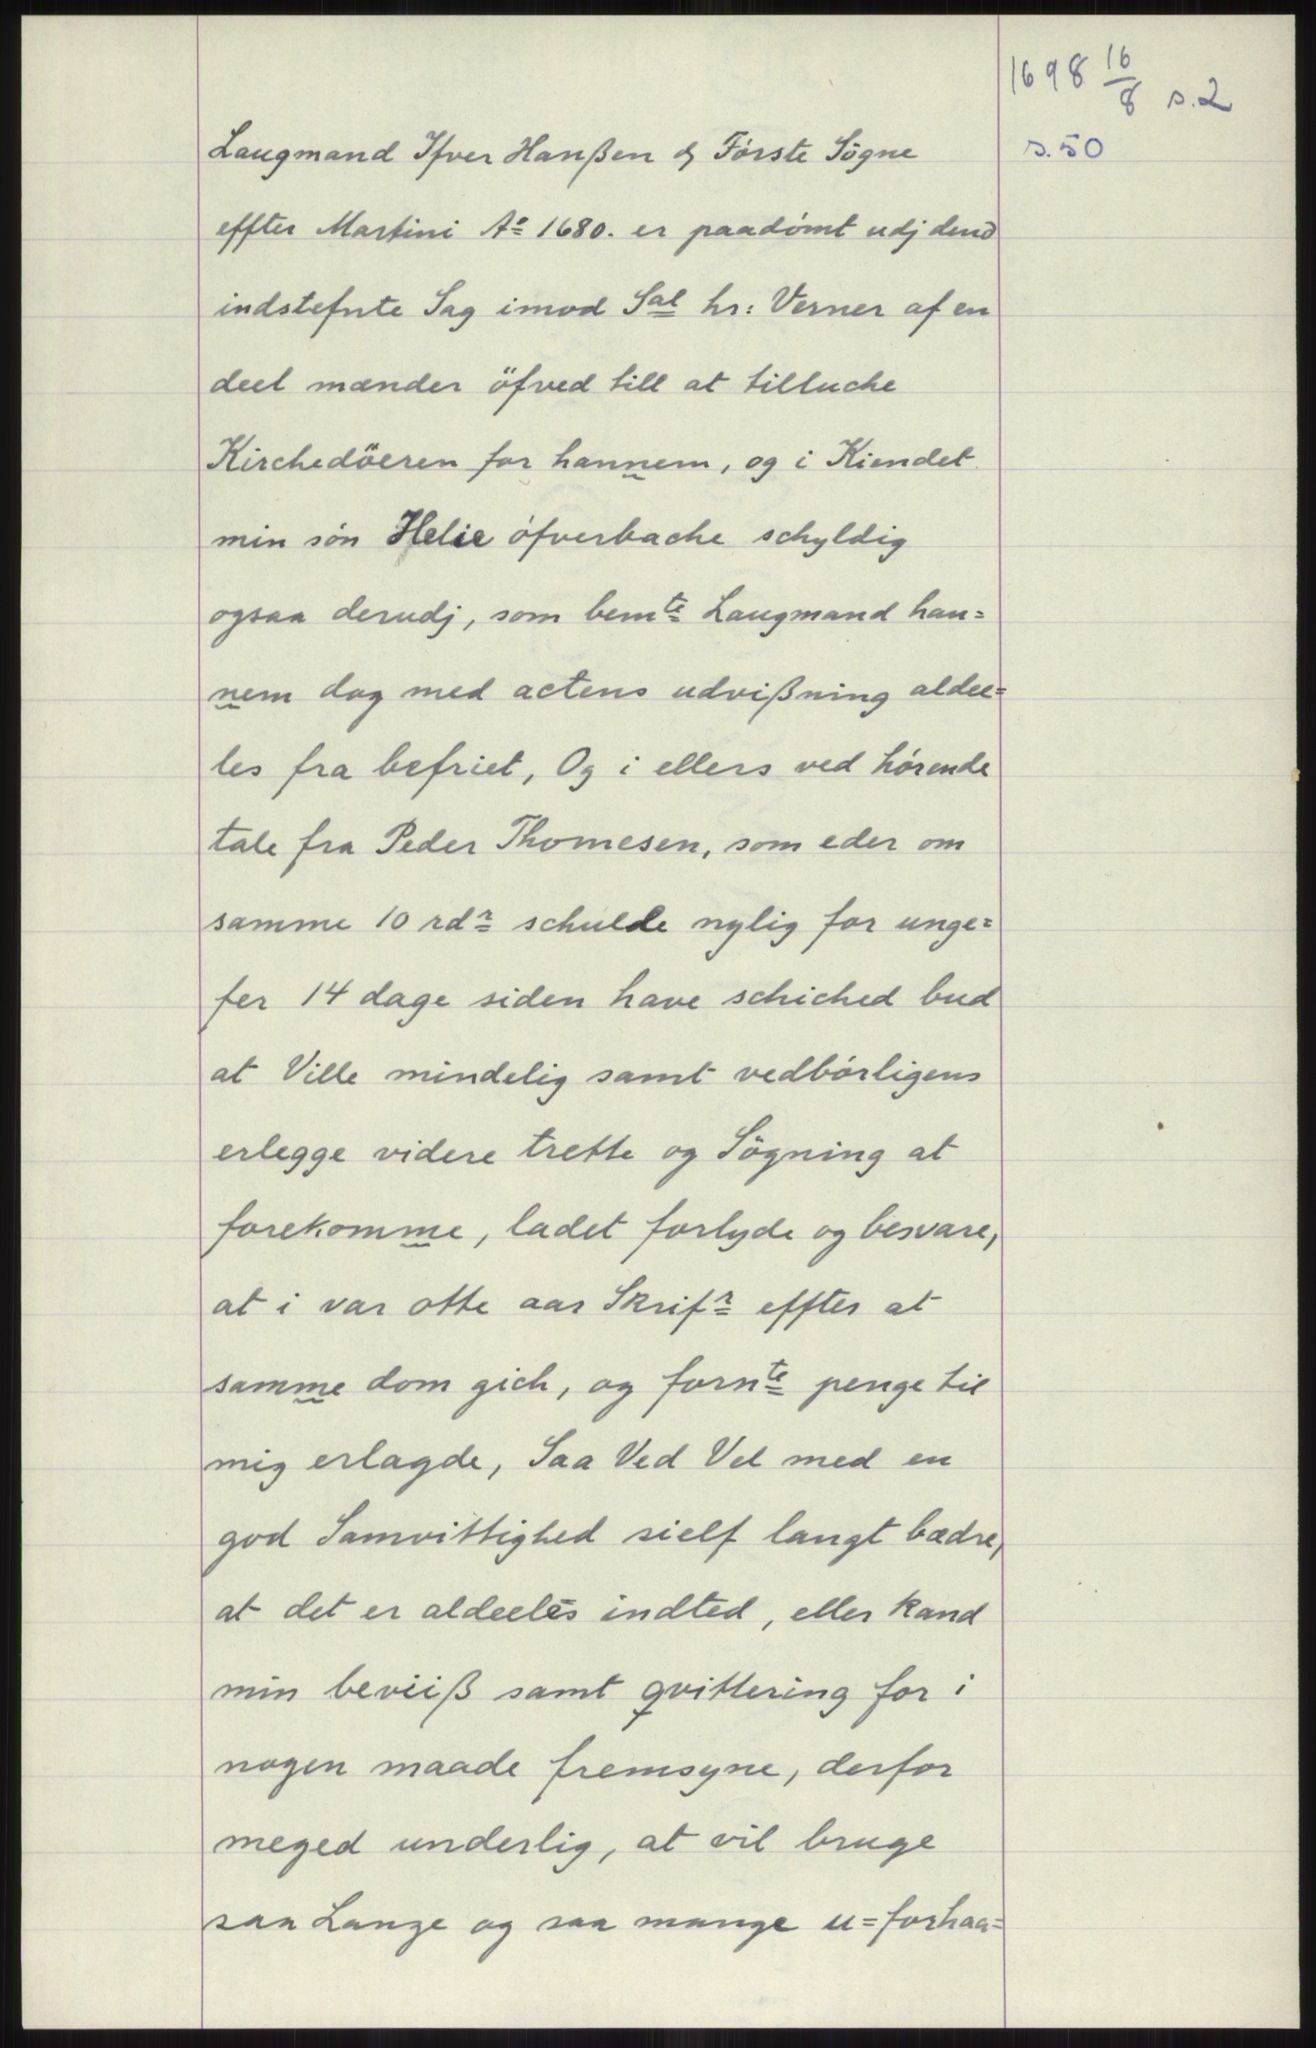 1698 16/8 s.2
s.50
Laugmand Ifver Hanßen & Förste Sögne
effter Martini Aº 1680. er paadömt udj dend
indstefnte Sag imod Sal hr: Verner af en
deel mænder öfved till at tilluche
Kirchedöeren for hannem, og i Kiendet
min sön Helie öfverbache schyldig
ogsaa derudj, som bemte Laugmand han=
nem dog med actens udvißning aldee=
les fra befriet, Og i ellers ved hörende
tale fra Peder Thomesen, som eder om
samme 10 rdr schulde nylig for unge=
fer 14 dage siden have schiched bud
at Ville mindelig samt vedbörligens
erlegge videre trette og Sögning at
forekomme, ladet forlyde og besvare,
at i var otte aar Skrifr effter at
samme dom gich, og fornte penge til
mig erlagde, Saa Ved Vel med en
god Samvittighed sielf langt bædre,
at det er aldeeles indted, eller kand
min beviiß samt qvittering for i
nogen maade fremsyne, derfor
meged underlig, at vil bruge
saa Lange og saa mange u=forhaa=